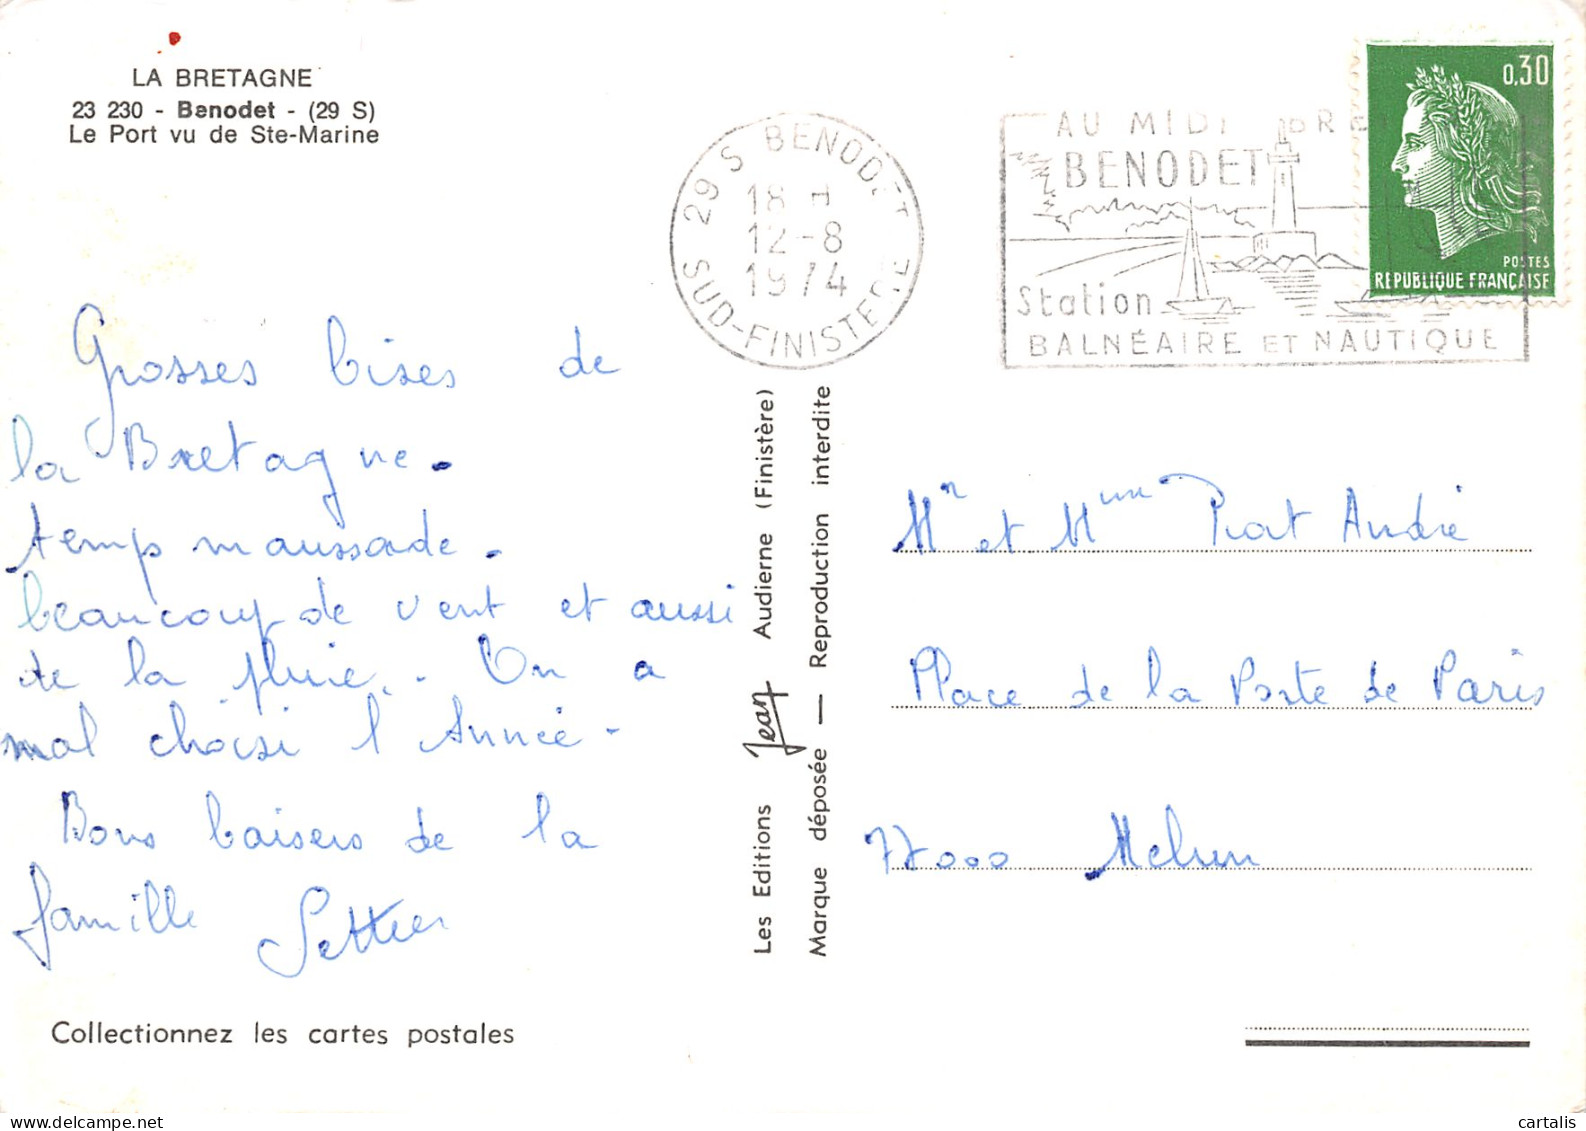 LA BRETAGNE
23 230 - Benodet - (29 S)
Le Port vu de Ste-Marine
29 S BENODET
18 H
12-8
1974
SUD-FINISTERE
AU MIDI
BENODET
Station
BALNÉAIRE ET NAUTIQUE
0,30
POSTES
REPUBLIQUE FRANÇAISE
Grosses bises de
la Bretagne.
temps maussade.
beaucoup de vent et aussi
de la pluie. On a
mal choisi l'Année.
Bons baisers de la
famille
Collectionnez les cartes postales
Les Editions Jean Audierne (Finistère)
Marque déposée — Reproduction interdite
Mr et Mme Prat André
Place de la Poste de Paris
77000 Melun
cartalis